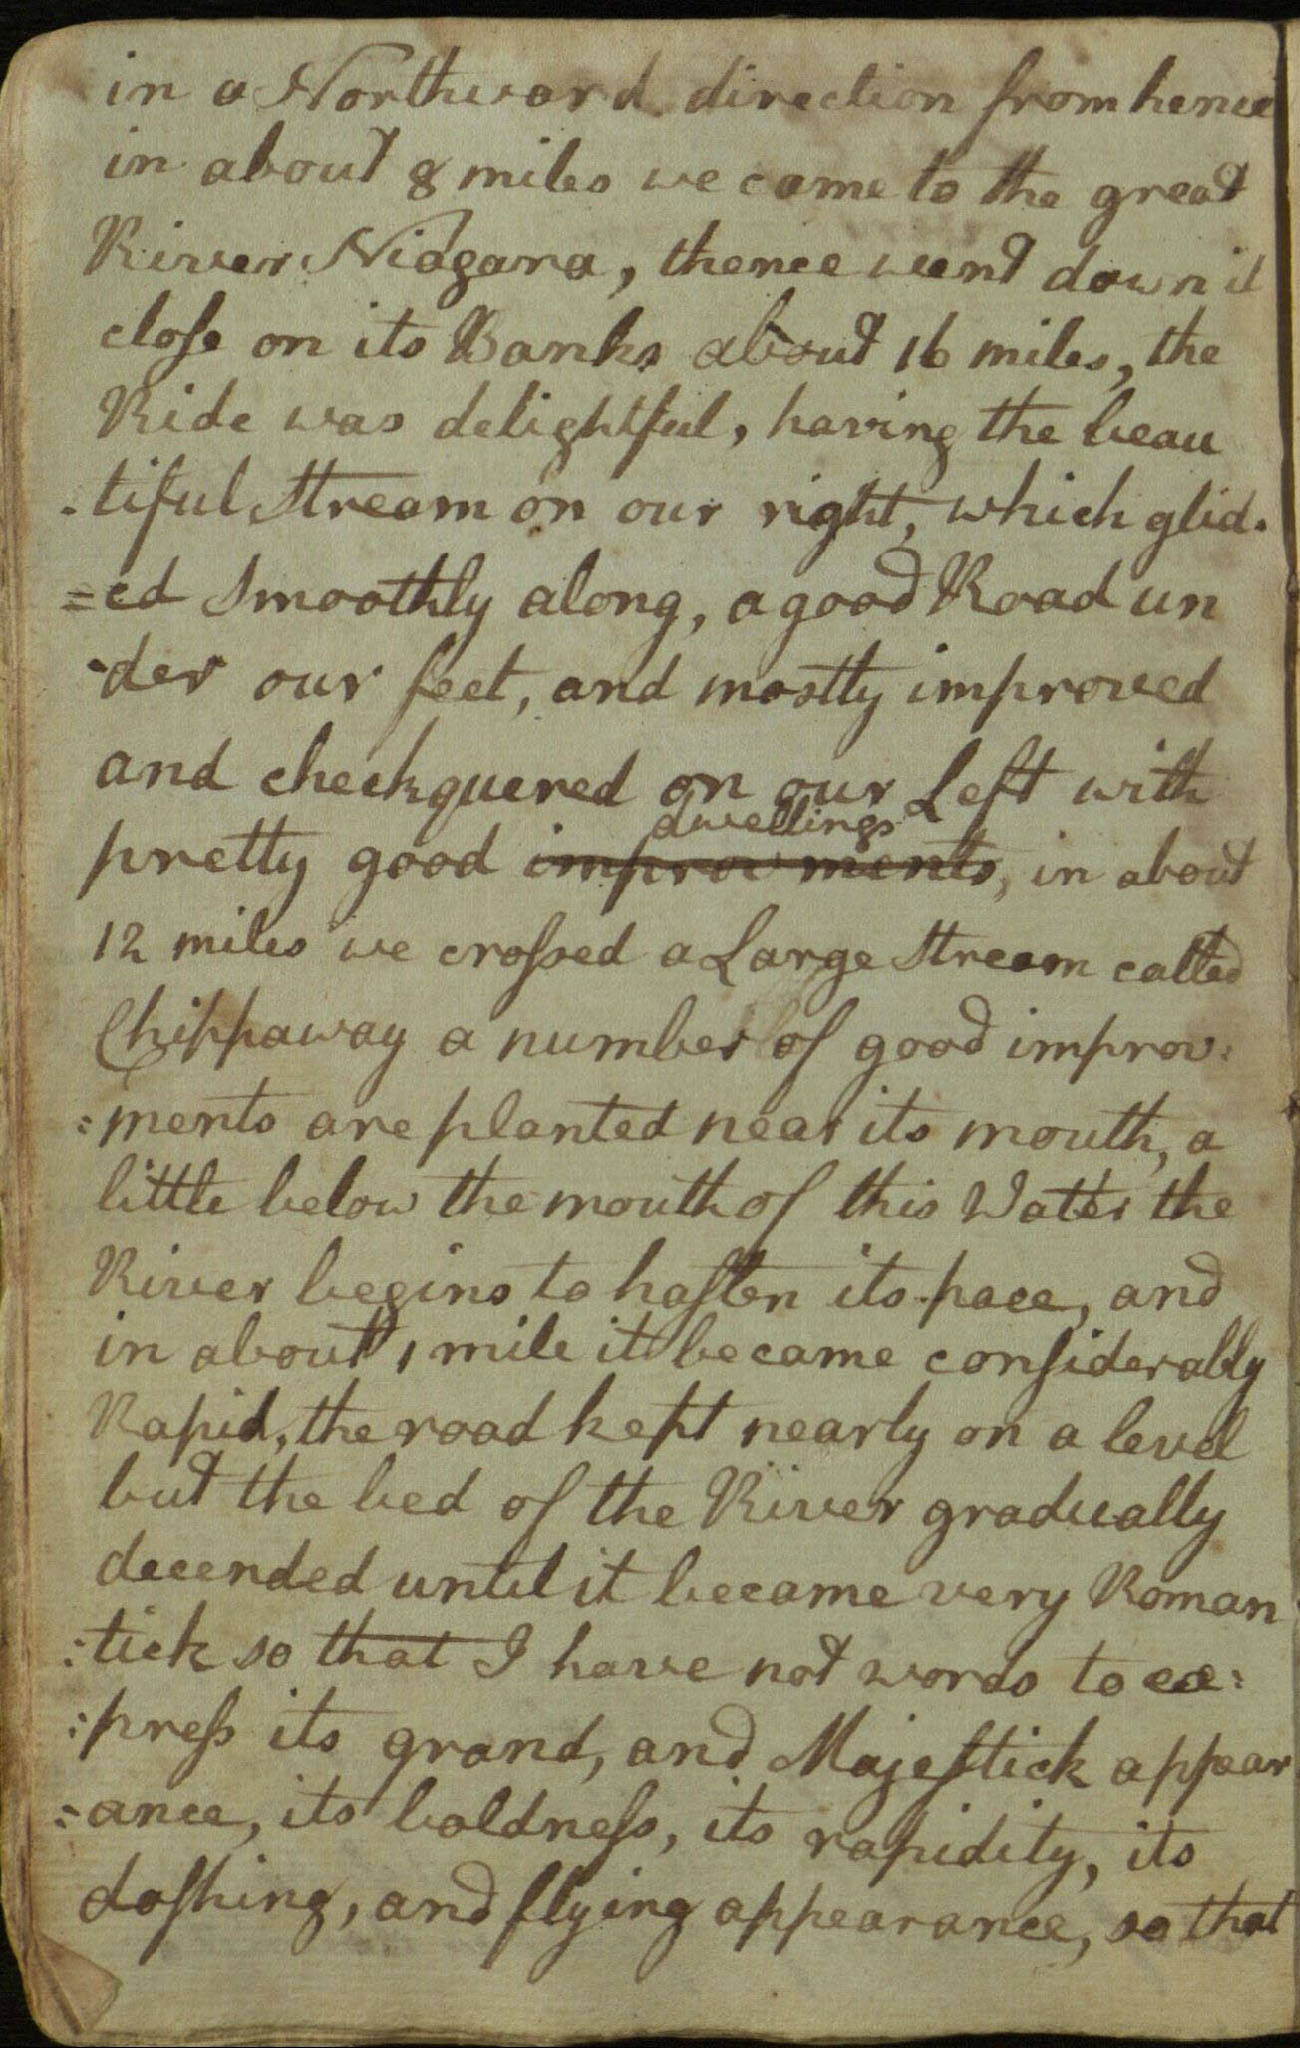 in a Northward direction from hence
in about 8 miles we came to the great
River Niagara, thence went down it
close on its Banks about 16 miles, the
Ride was delightful, having the beau
-tiful Stream on our right, which glid-
=ed Smoothly along, a good Road un
-der our feet, and mostly improved
and checkquered on our Left with
dwellings
pretty good improvments, in about
12 miles we crossed a Large Stream called
Chippaway a number of good improv:
:ments are planted near its mouth, a
little below the mouth of this Water the
River begins to hasten its pace, and
in about 1 mile it became considerably
Rapid, the road kept nearly on a level
but the bed of the River gradually
decended until it became very Roman
:tick so that I have not words to ex:
:press its grand, and Majestick appear
:ance, its boldness, its rapidity, its
dashing, and flying appearance, so that